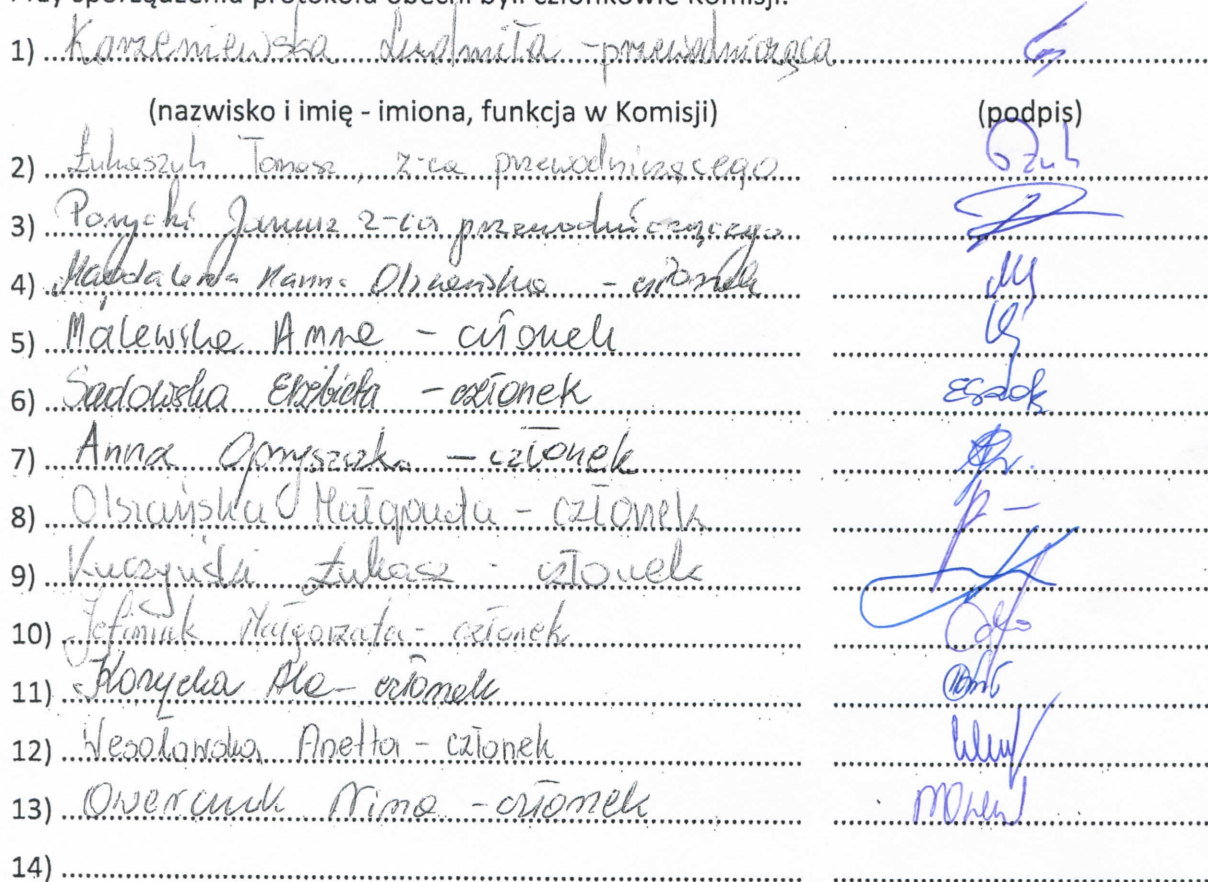 1) Korzeniewska Ludmiła - przewodnicząca
(nazwisko i imię - imiona, funkcja w Komisji) (podpis)
2) Łukaszuk Tomasz, z-ca przewodniczącego
3) Janusz z-ca przewodniczączego
4) Magdalena Hanna Olszewska - członek
5) Malewska Anna - członek
6) Sadowska Elżbieta - członek
7) Anna - członek
8) Olszańska Małgorzata - członek
9) Kuczyński Łukasz - członek
10) Jefimiuk Małgorzata - członek
11) Ala - członek
12) Wesołowska Anetta - członek
13) Owerczuk Nina - członek
14)